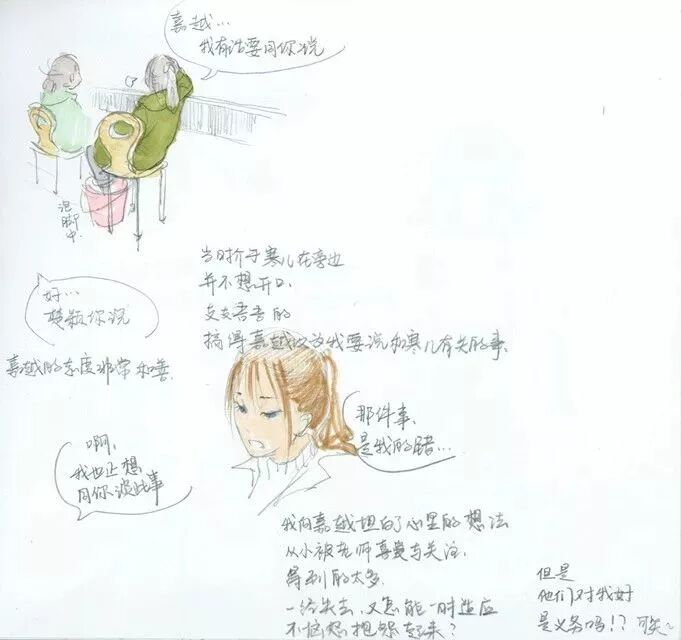 嘉越…
我有话要同你说
泡
脚
中.
当时介于寒儿在旁边
并不想开口.
支支吾吾的
搞得嘉越以为我要说和寒儿有关的事.
好…
楚颖你说
嘉越的态度非常和善.
那件事,
是我的错…
啊,
我也正想
同你谈此事
我向嘉越坦白了心里的想法
从小被老师喜爱与关注.
得到的太多.
一经失去,又怎能一时适应
不恼怒抱怨起来?
但是
他们对我好
是义务吗!?可笑~